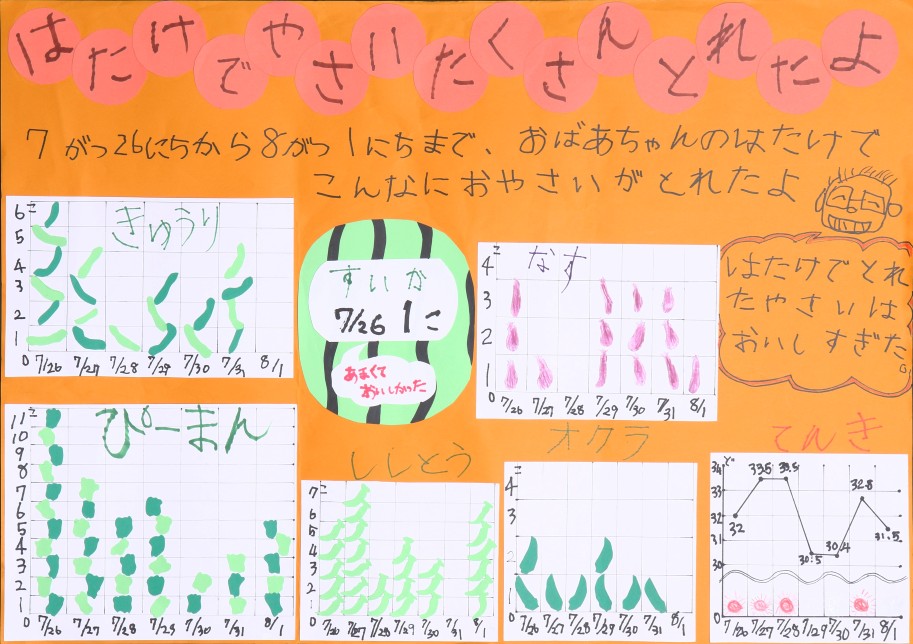 はたけでやさいたくさんとれたよ
7がつ26にちから8がつ1にちまで、おばあちゃんのはたけで
こんなにおやさいがとれたよ
きゅうり
6こ
5
4
3
2
1
0
7/26 7/27 7/28 7/29 7/30 7/31 8/1
すいか
7/26 1こ
あまくて
おいしかった
なす
4こ
3
2
1
0
7/26 7/27 7/28 7/29 7/30 7/31 8/1
はたけでとれ
たやさいは
おいしすぎた。
ぴーまん
11こ
10
9
8
7
6
5
4
3
2
1
0
7/26 7/27 7/28 7/29 7/30 7/31 8/1
ししとう
7こ
6
5
4
3
2
1
0
7/26 7/27 7/28 7/29 7/30 7/31 8/1
オクラ
4こ
3
2
1
0
7/26 7/27 7/28 7/29 7/30 7/31 8/1
てんき
34
33
32
31
30
0
32 33.5 33.5 30.5 30.4 32.8 31.5
7/26 7/27 7/28 7/29 7/30 7/31 8/1